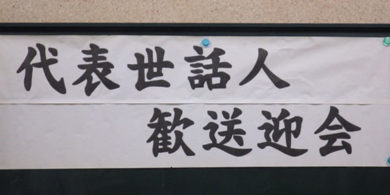 代表世話人
歓送迎会